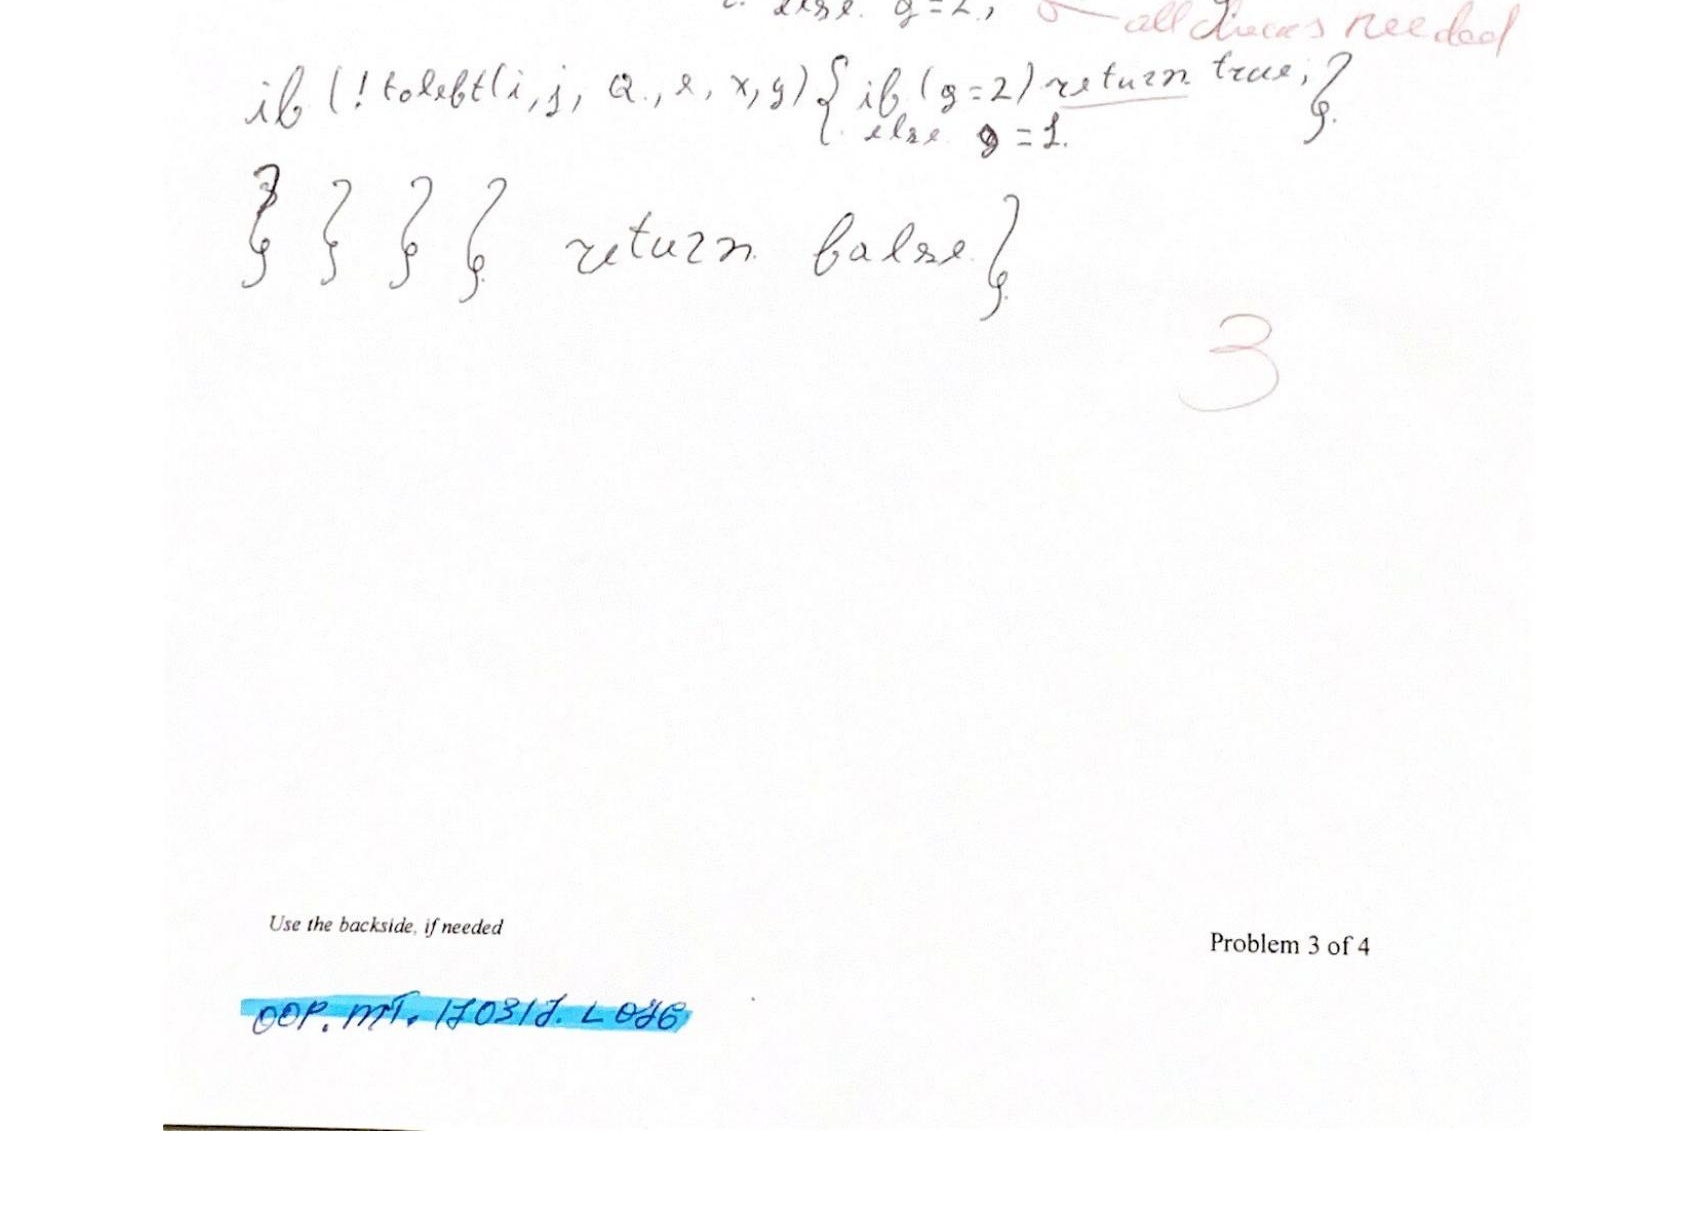 else g=2;
all needed
if (!toleft(i, j, Q, e, x, y) { if (g=2) return true; }
else g=1.
} } } } return false }
3
Use the backside, if needed
Problem 3 of 4
OOP. MT.